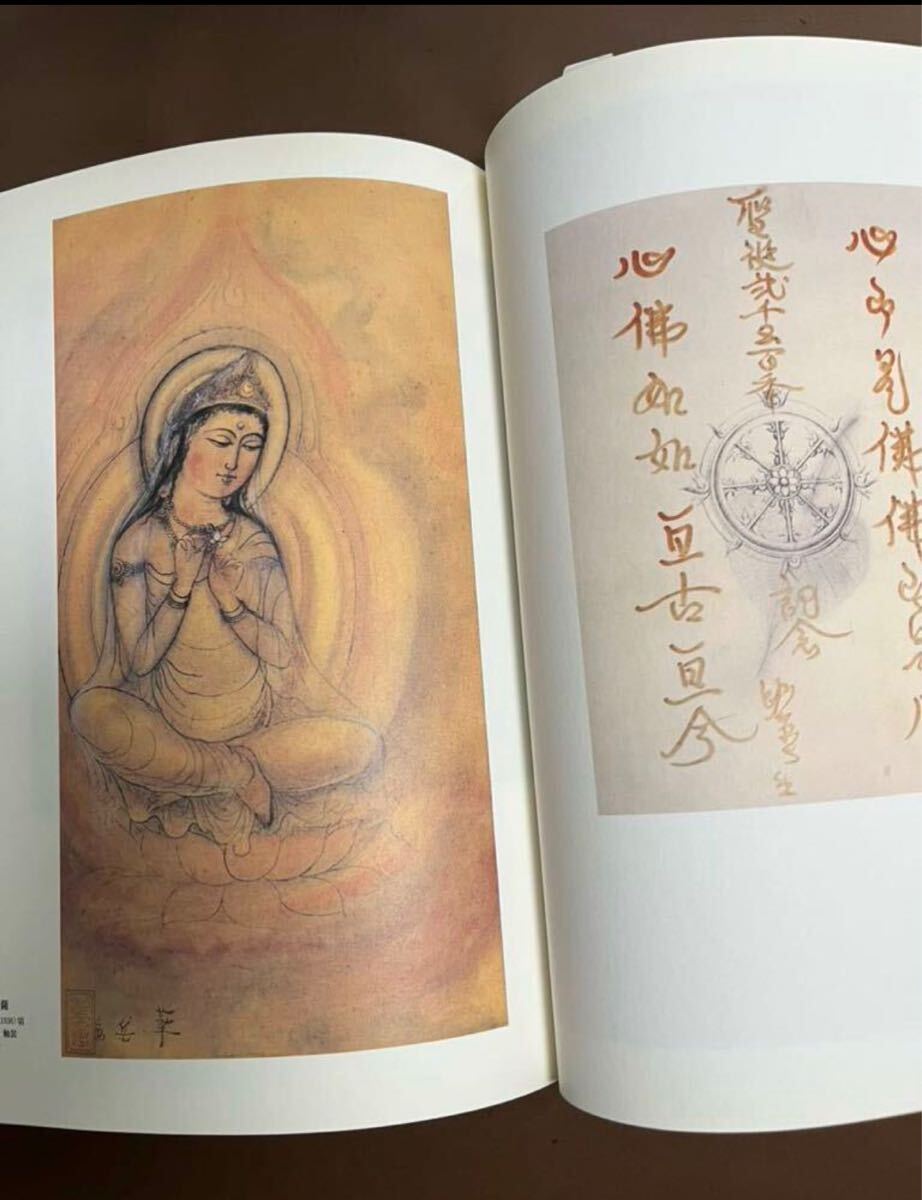 心即是佛佛即
聖誕弐千五百季
記念
心佛如如亘古亘今
華岳
薩
1936)頃
軸装